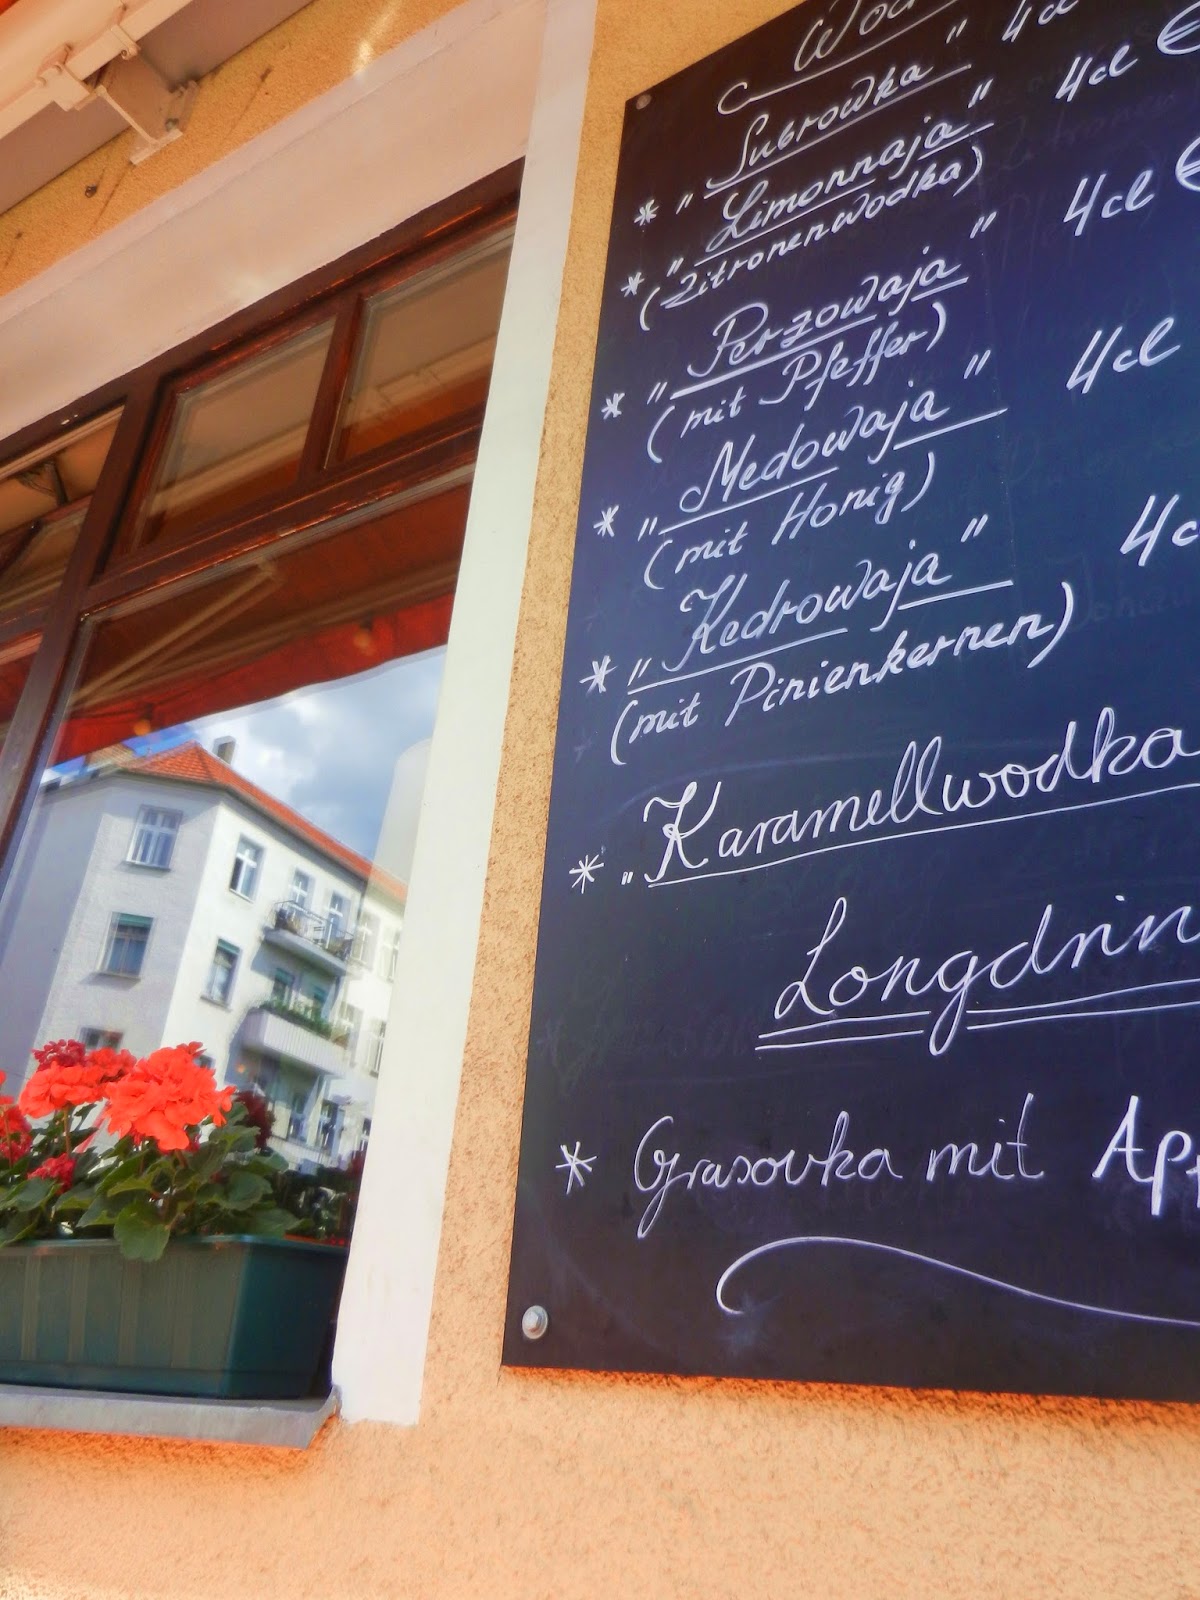 * „Subrowka" 4cl
* „Limonnaja" 4cl €
(Zitronenwodka)
* „Perzowaja" 4cl €
(mit Pfeffer)
* „Medowaja" 4cl
(mit Honig)
* „Kedrowaja" 4c
(mit Pinienkernen)
* „Karamellwodka
Longdrin
* Grasovka mit Ap